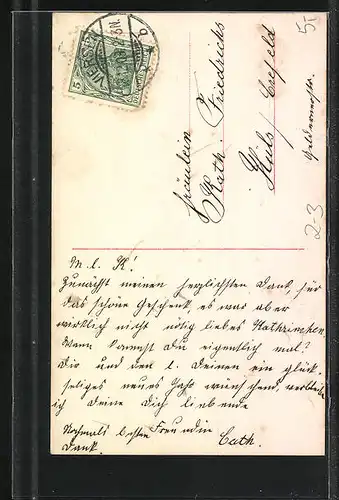 Fräulein
Kath. Friedrichs
Hüls / Crefeld
5-
2-3
VIERSEN
5
M. l. K!
Zunächst meinen herzlichsten Dank, für
das schöne Geschenk, es war aber
wirklich nicht nötig liebes Kathrinchen.
Wann kommst Du eigentlich mal?
Dir und den l. Deinen ein glück-
seliges neues Jahr wünschend, verbleibe
ich Deine Dich liebende
Nochmals besten Freundin
Dank. Cath.